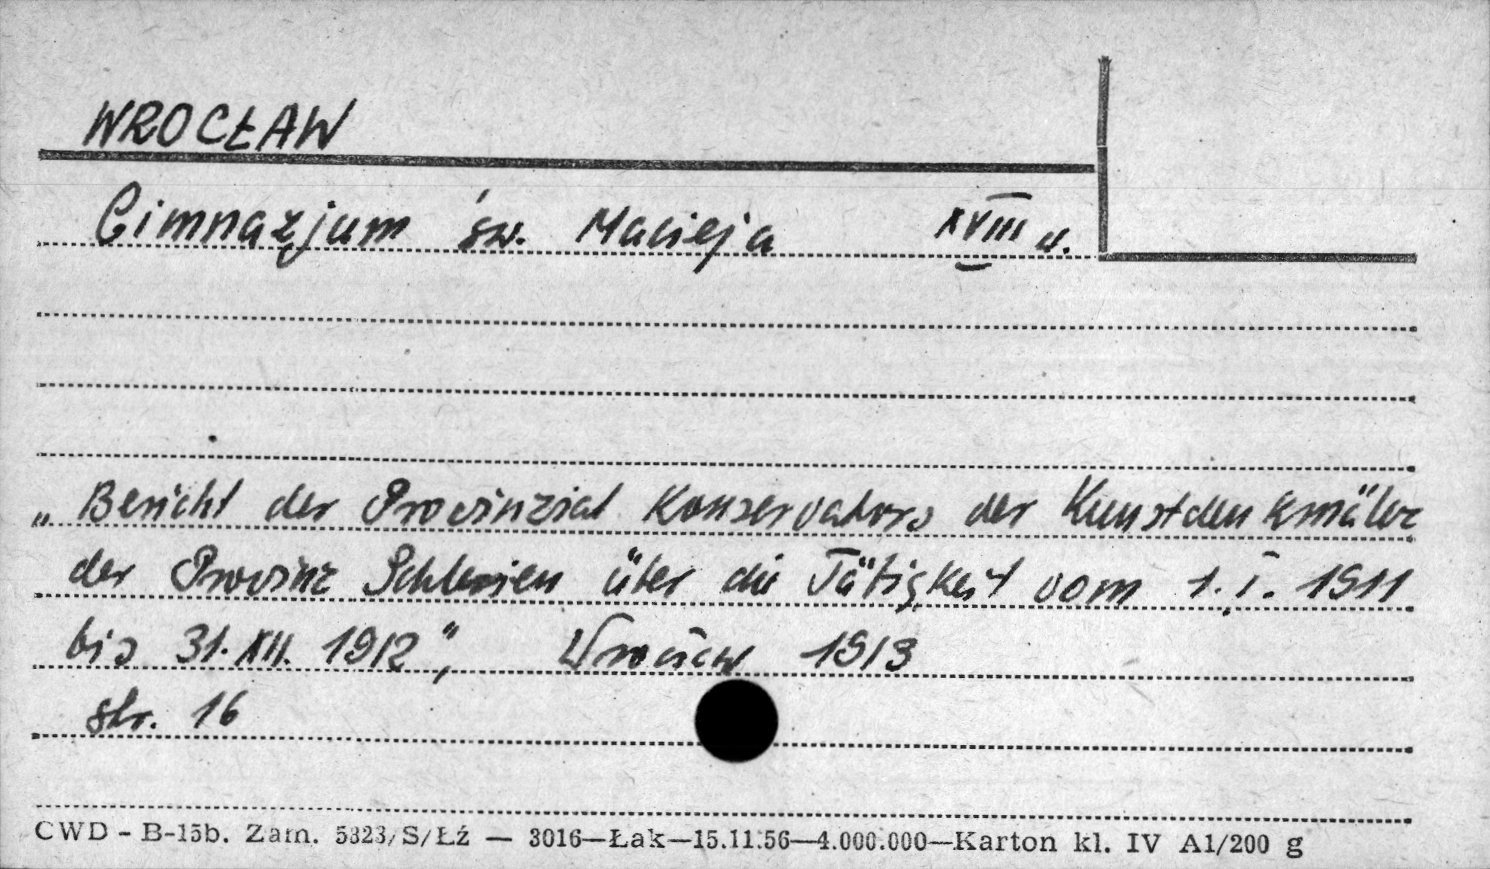 WROCŁAW
Gimnazjum św. Macieja XVIII w.
„Bericht der Provinzial Konservators der Kunstdenkmäler
der Provinz Schlesien über die Tätigkeit vom 1. I. 1911
bis 31. XII. 1912", Wrocław 1913
str. 16
CWD - B-15b. Zam. 5323/S/Łź — 3016—Łak—15.11.56—4.000.000—Karton kl. IV A1/200 g